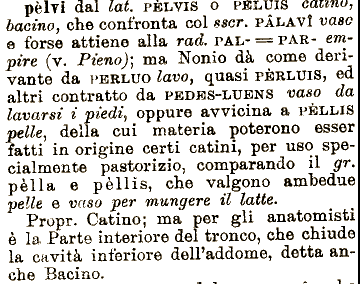 pèlvi dal lat. PÈLVIS o PÈLUIS catino,
bacino, che confronta col sscr. PÂLAVÎ vaso
e forse attiene alla rad. PAL- = PAR- em-
pire (v. Pieno); ma Nonio dà come deri-
vante da PERLUO lavo, quasi PÈRLUIS, ed
altri contratto da PEDES-LUENS vaso da
lavarsi i piedi, oppure avvicina a PÈLLIS
pelle, della cui materia poterono esser
fatti in origine certi catini, per uso spe-
cialmente pastorizio, comparando il gr.
pèlla e pèllis, che valgono ambedue
pelle e vaso per mungere il latte.
Propr. Catino; ma per gli anatomisti
è la Parte interiore del tronco, che chiude
la cavità inferiore dell'addome, detta an-
che Bacino.